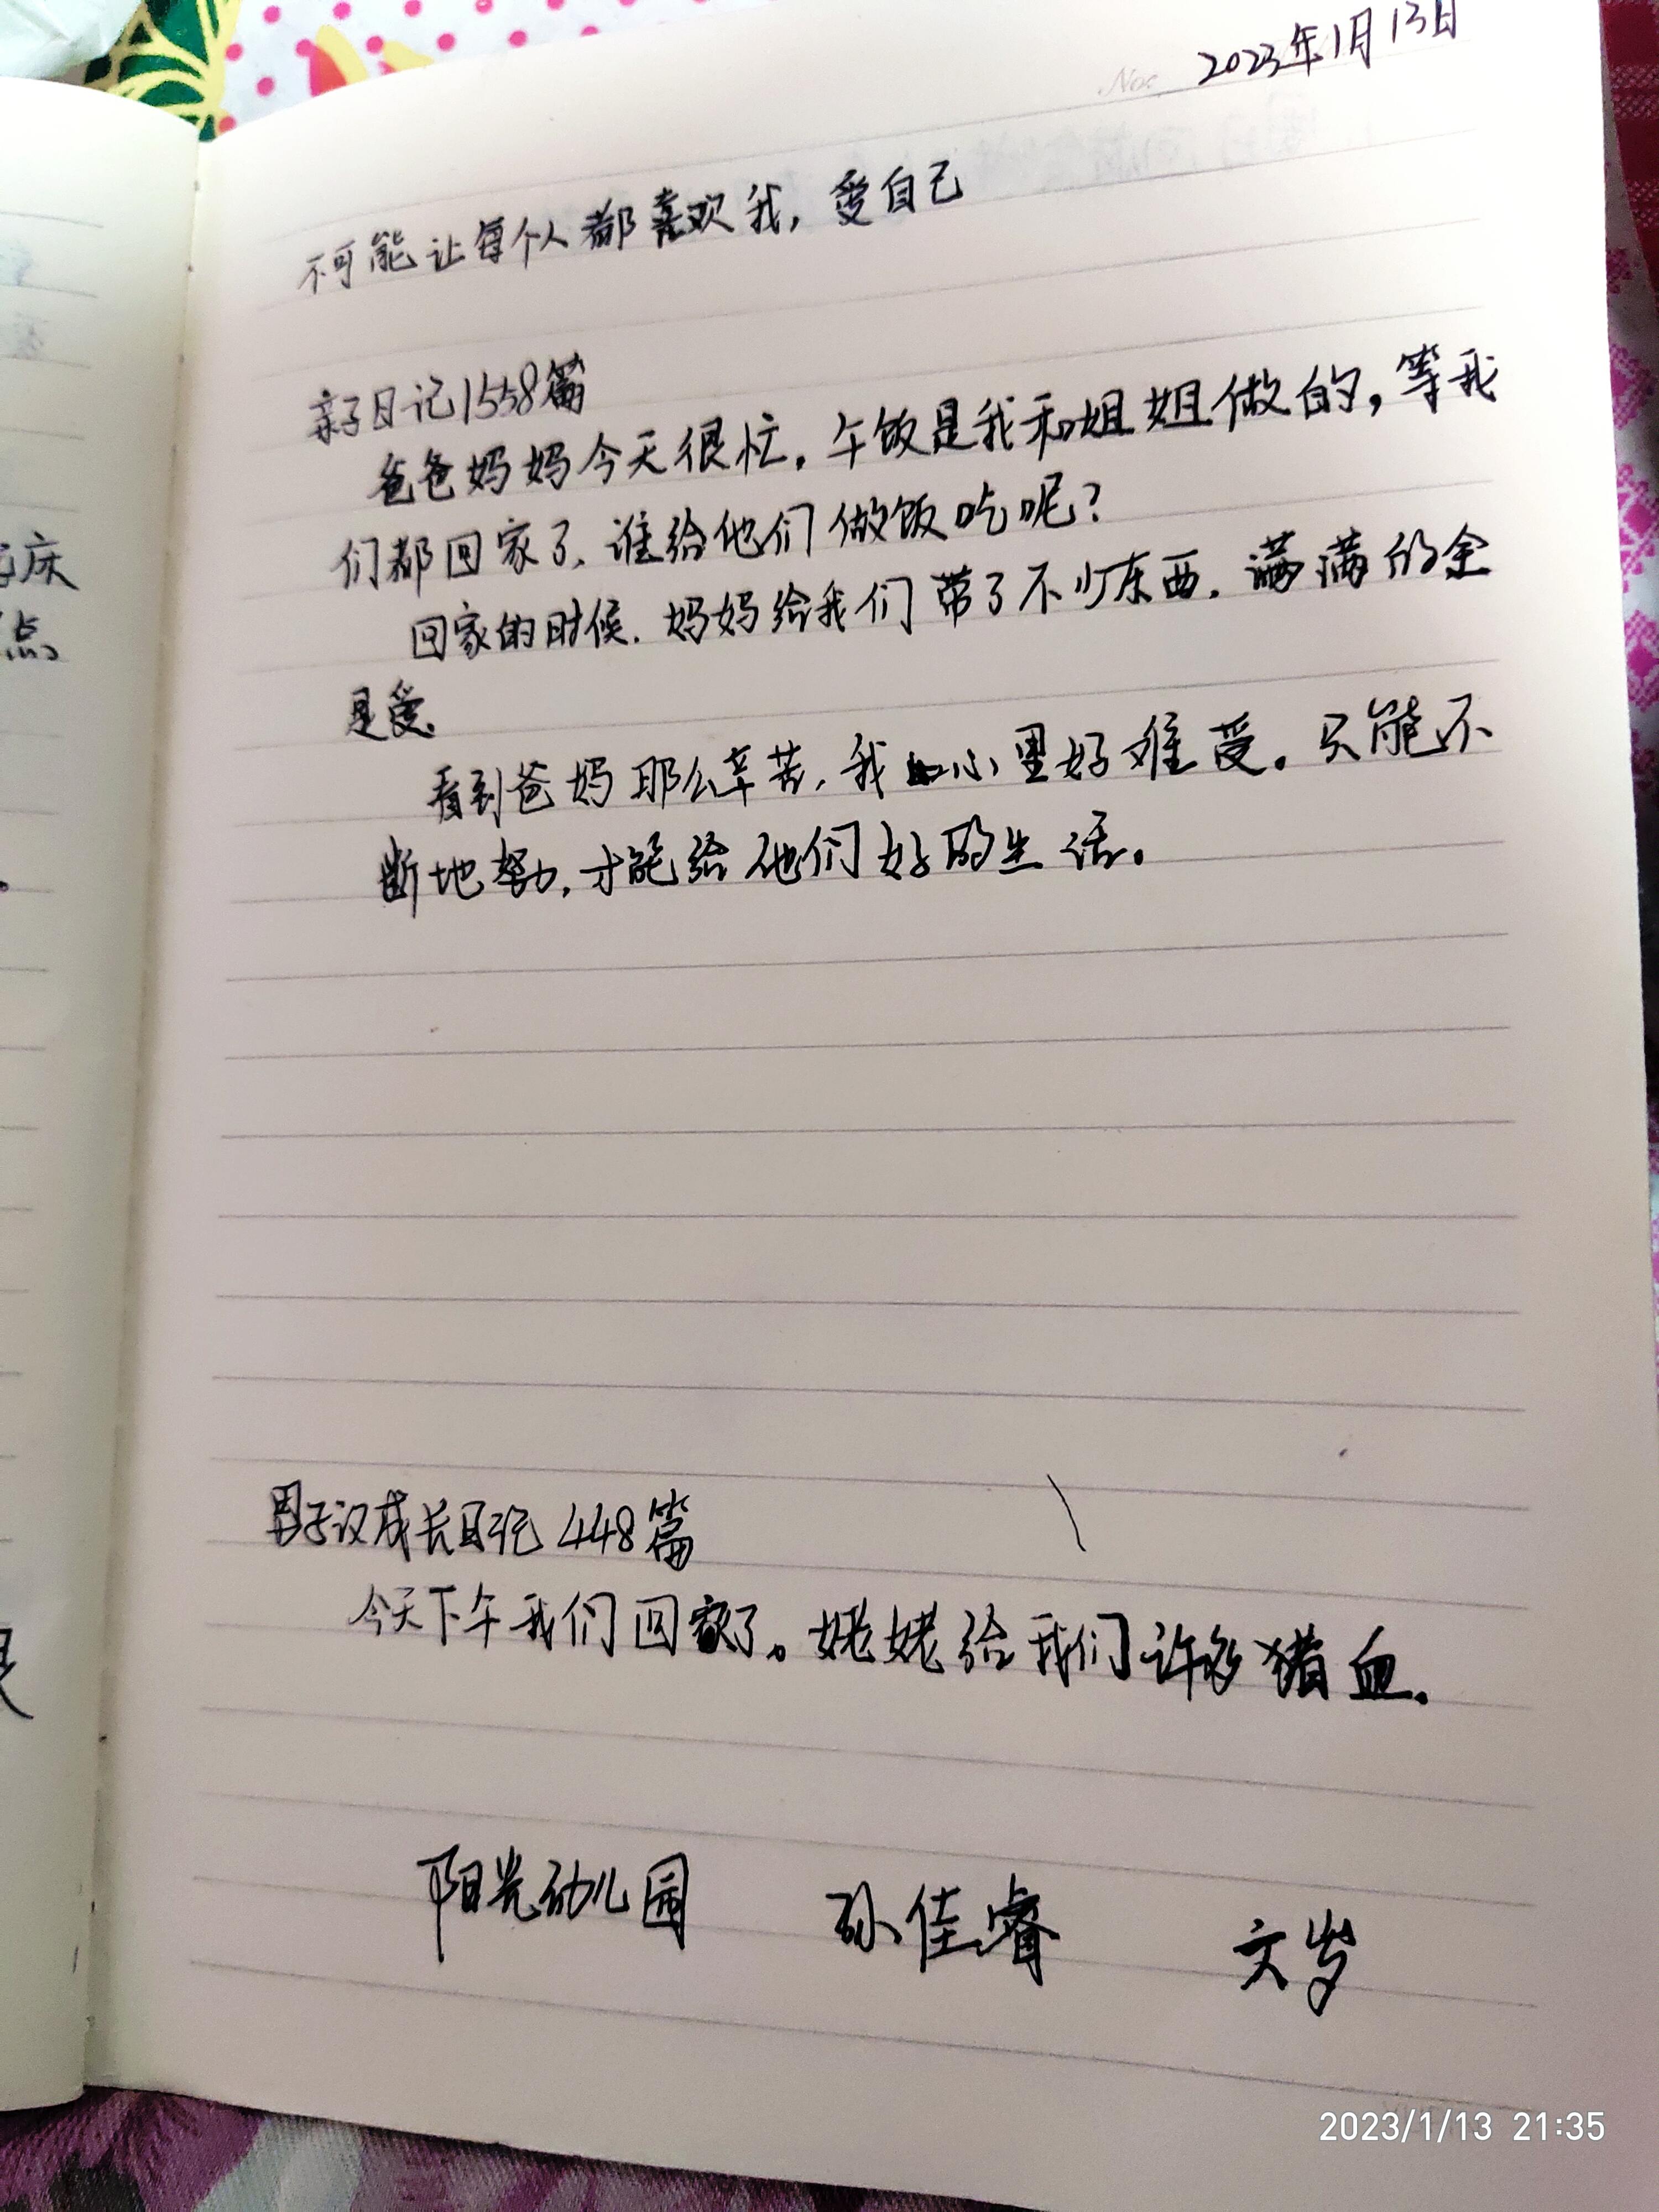 No: 2023年1月13日
不可能让每个人都喜欢我，爱自己
亲子日记1558篇
爸爸妈妈今天很忙，午饭是我和姐姐做的，等我
们都回家了，谁给他们做饭吃呢？
回家的时候，妈妈给我们带了不少东西，满满的全
是爱。
看到爸妈那么辛苦，我心里好难受。只能不
断地努力，才能给他们好的生活。
男子汉成长日记448篇
今天下午我们回家了。姥姥给我们许多猪血。
阳光幼儿园 孙佳睿 岁
床
点
2023/1/13 21:35